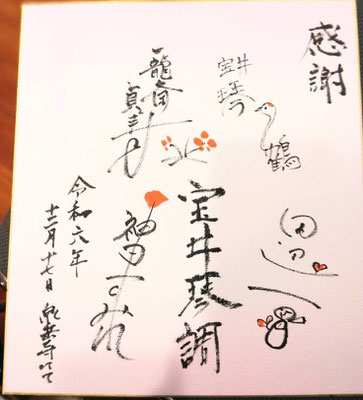 感謝
宝井
琴
鶴
一龍斎
貞寿
田辺一
宝井琴調
神田すみれ
令和六年
十二月十七日 泉岳寺にて